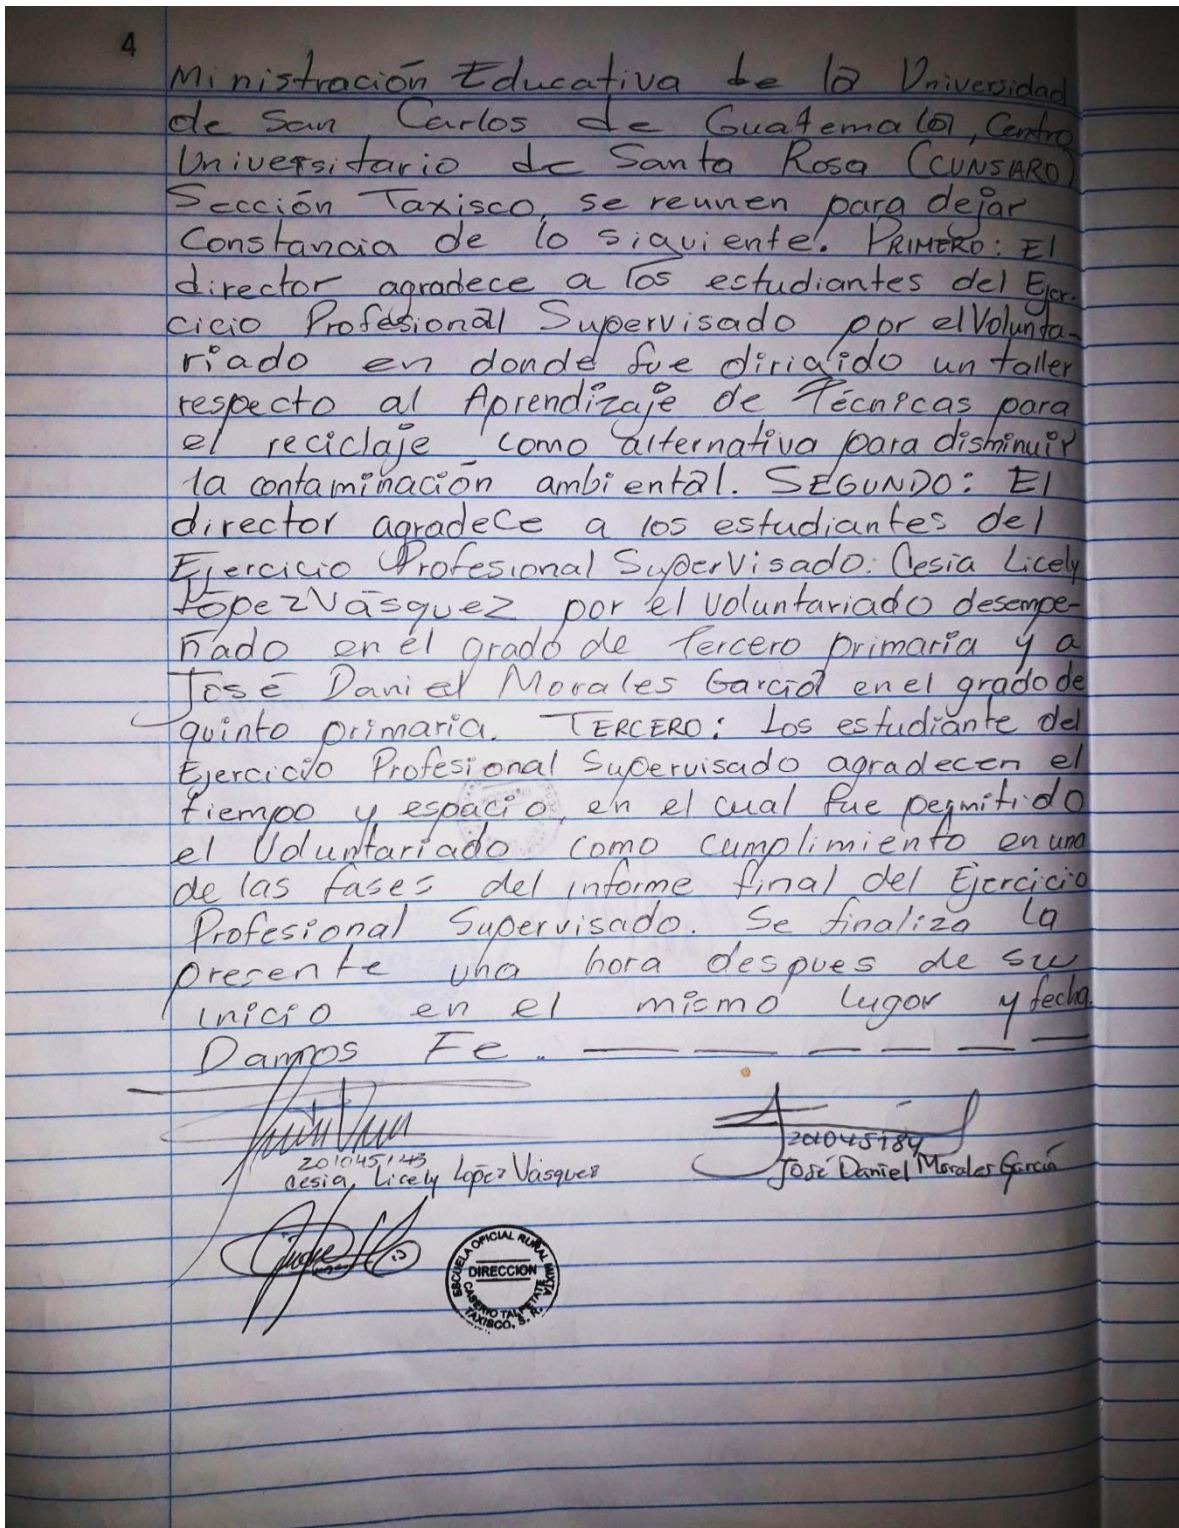 4
Ministración Educativa de la Universidad
de San Carlos de Guatemala, Centro
Universitario de Santa Rosa (CUNSARO)
Sección Taxisco, se reunen para dejar
Constancia de lo siguiente. PRIMERO: El
director agradece a los estudiantes del Ejer-
cicio Profesional Supervisado por el Volunta-
riado en donde fue dirigido un taller
respecto al Aprendizaje de Técnicas para
el reciclaje como alternativa para disminuir
la contaminación ambiental. SEGUNDO: El
director agradece a los estudiantes del
Ejercicio Profesional Supervisado: Cesia Licely
López Vásquez por el voluntariado desempe-
ñado en el grado de Tercero primaria y a
José Daniel Morales García en el grado de
quinto primaria. TERCERO: Los estudiante del
Ejercicio Profesional Supervisado agradecen el
tiempo y espacio, en el cual fue permitido
el Voluntariado como cumplimiento en una
de las fases del informe final del Ejercicio
Profesional Supervisado. Se finaliza la
presente una hora despues de su
inicio en el mismo lugar y fecha.
Damos Fe. — — — — — —
201045143
Cesia Licely López Vásquez
201045184
José Daniel Morales García
ESCUELA OFICIAL RURAL MIXTA
DIRECCION
CASERIO TALPETATE
TAXISCO, S. R.